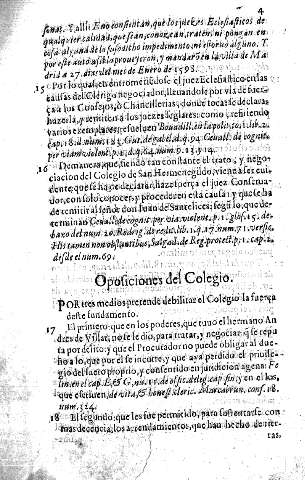 4
sonas. Y alli: E no consientan, que los juezes Eclesiasticos de
qualquier calidad que sean, conozcan, traten, ni pongan en
cosa alguna de lo susodicho impedimento, ni estoruo alguno. Y
por este auto assi lo proueyeron, y mandaron en la villa de Ma
drid a 27. dias del mes de Enero de 1598.
15 Por lo qual, en entrometiendose el juez Eclesiastico en las
causas del Clerigo negociador, lleuandose por via de fuer-
ça a los Consejos, o Chancillerias, donde toca se declara
hazerla, y remiten a los juezes seglares: como, refiriendo
varios exemplares, resuelue Bouadill. in sa politic. lib. 2.
cap. 18. num. 123. Gut. de gabel. q. 94. Ceuall. de cognit.
per viam violent. p. 2. q. 64. num. 9. 13. y 14.
16 De manera, que siendo tan constante el trato, y nego-
ciacion del Colegio de San Hermenegildo, viene a ser eui-
dente, que se ha de declarar, haze fuerça el juez Conserua-
dor, con solo conocer, y proceder en esta causa: y que se ha
de remitir al señor don Juan de Santelices; segū lo, que de-
terminan Ceuall. de cognit. per viam violent. p. 1. glos. 15. de-
baxo del num. 20. Rodrig. de redit. lib. 1. q. 17. num. 71. versic.
His tamen non obstantibus, Salgad. de Reg. protect. p. 1. cap. 2.
desde el num. 69.
Oposiciones del Colegio.
POR tres medios pretende debilitar el Colegio la fuerça
deste fundamento.
17 El primero, que en los poderes, que tuuo el hermano An
dres de Villar, no se le dio, para tratar, y negociar, q̃ se repu
ta por delito: y que el Procurador no puede obligar al due-
ño a lo, que por el se incurre, y que aya perdido el priuile-
gio del fuero proprio, y consentido en jurisdicion agena: Fe
lin. en el cap. E, & G, nu. 15. de offic. deleg. cap. fin; y en el los,
que escriuen, de vita, & honest. cleric. Marcabrun. cons. 18.
num. 324.
18 El segundo, que les fue permitido, para sustentarse con
mas decencia, los arrendamientos, que han hecho de tier-
ras.